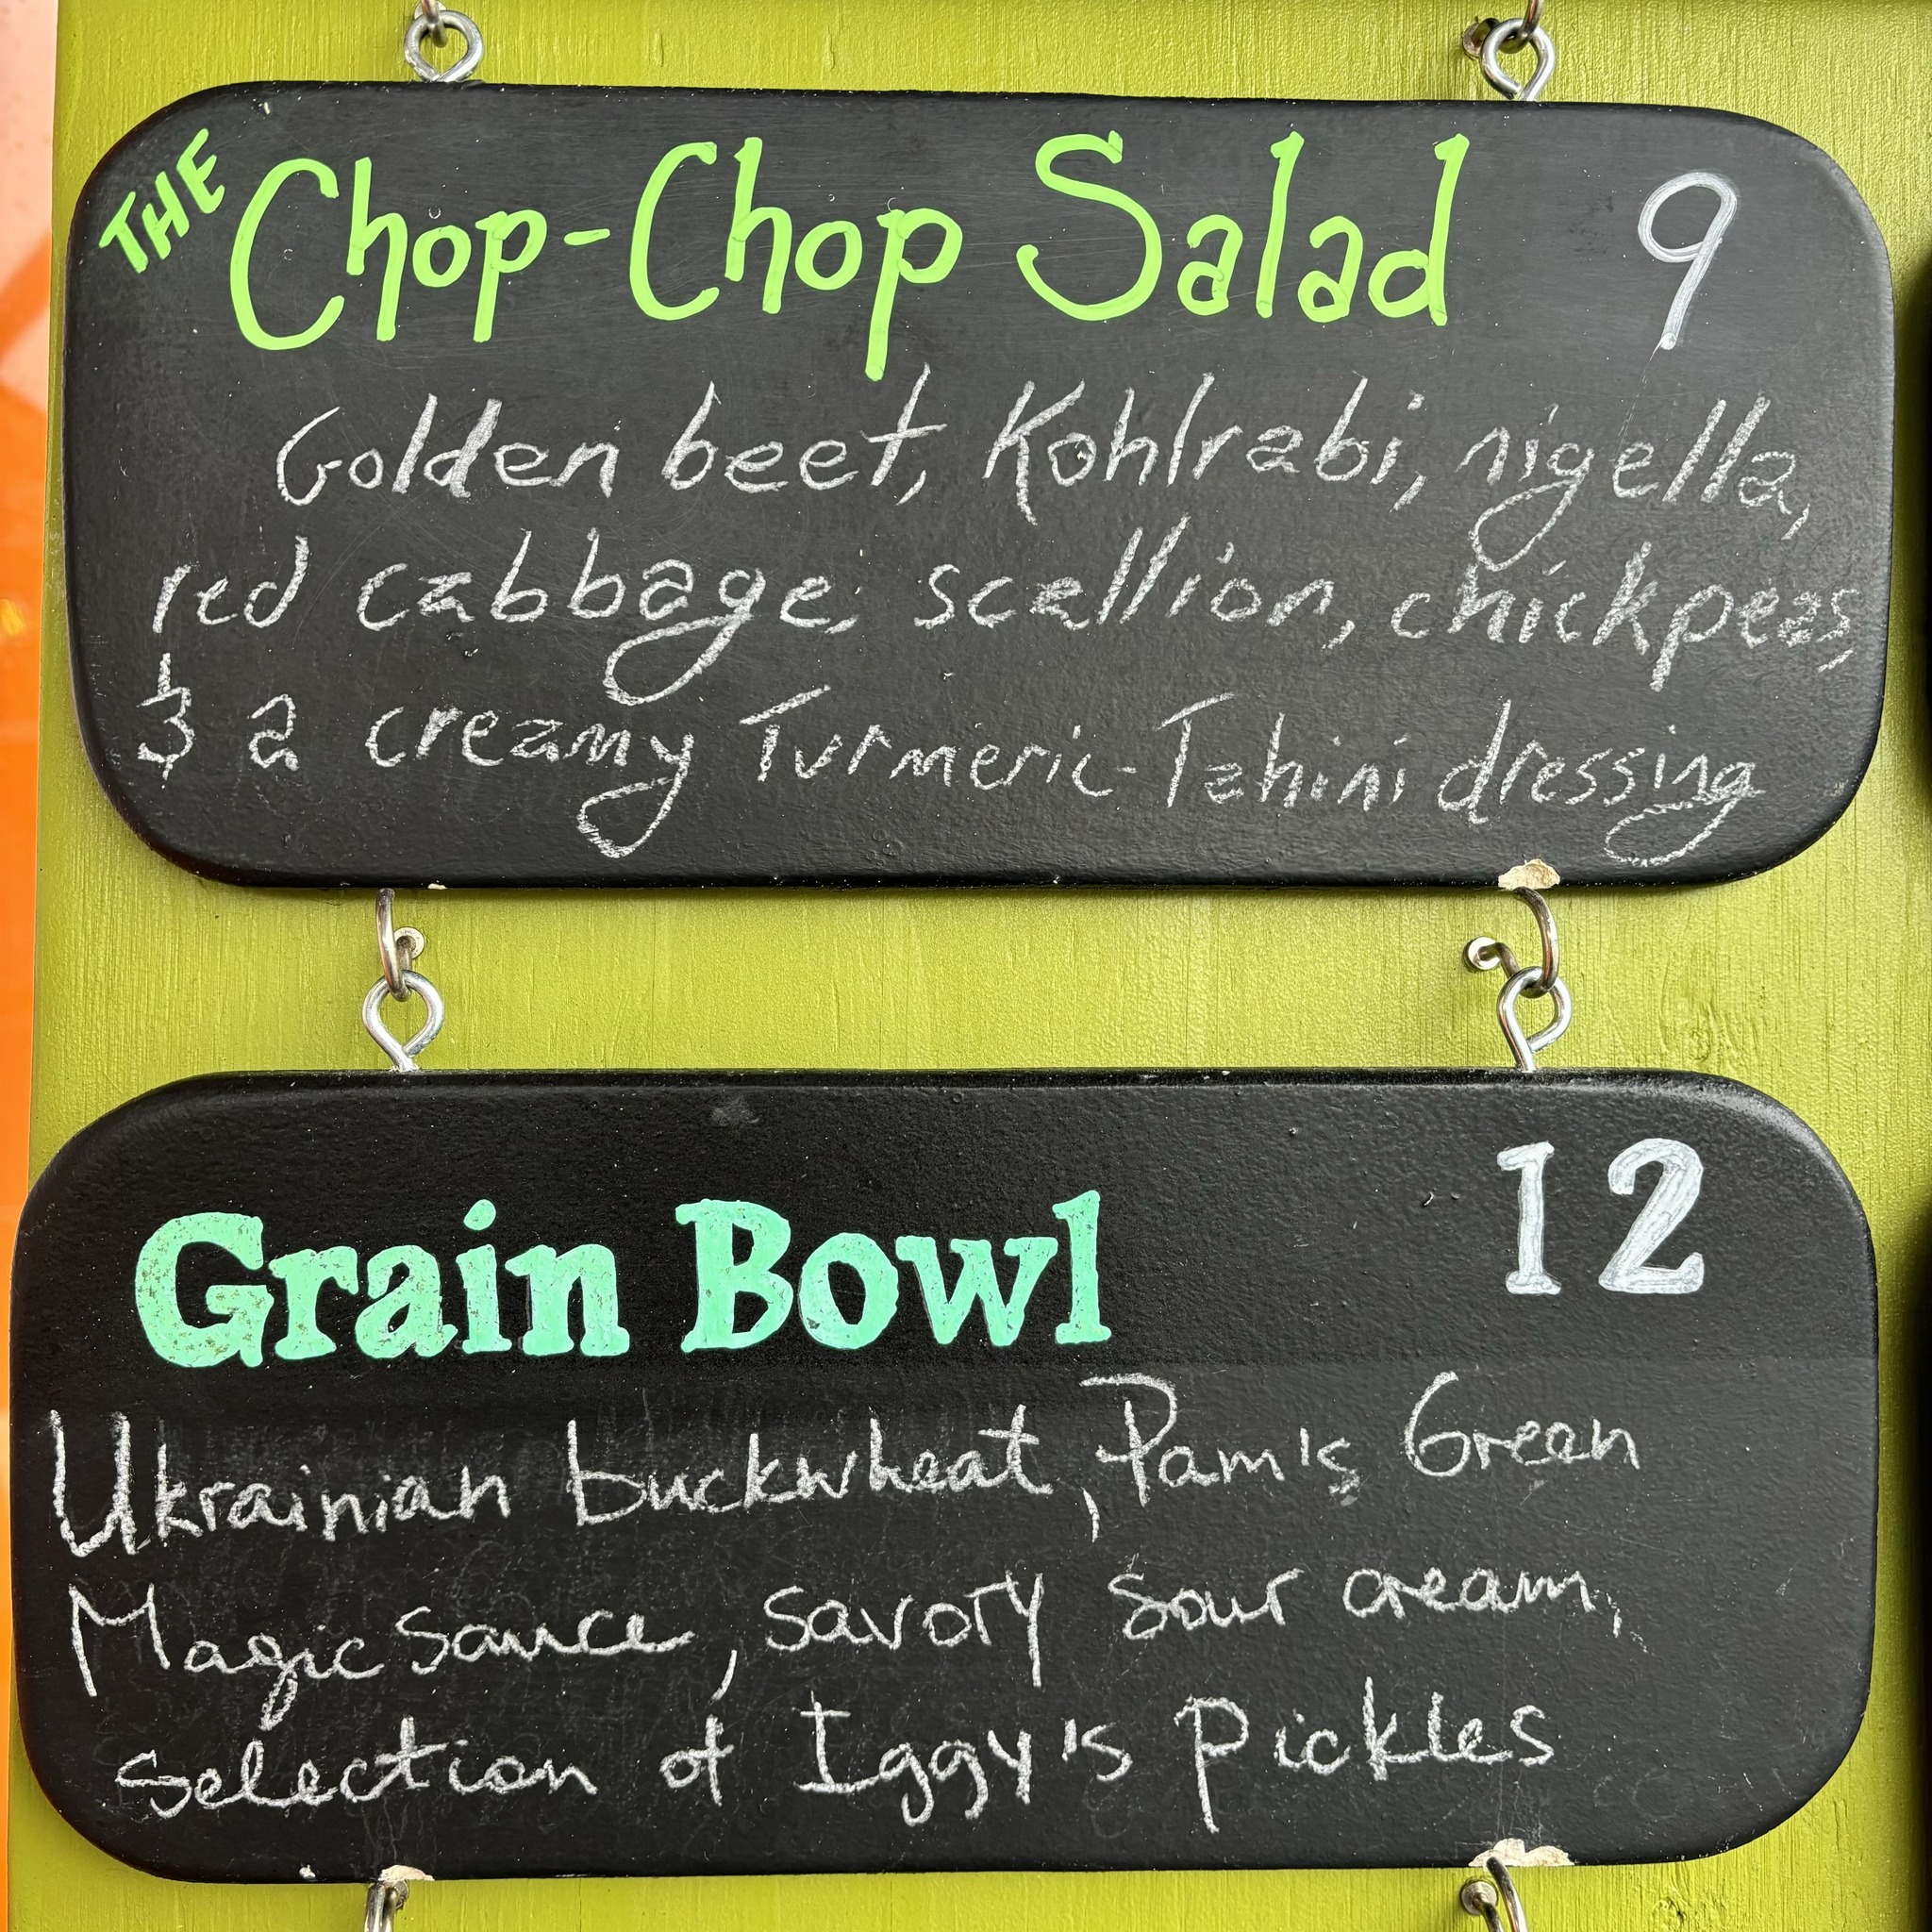 THE Chop-Chop Salad 9
Golden beet, Kohlrabi, nigella,
red cabbage, scallion, chickpeas,
& a creamy Turmeric-Tahini dressing
Grain Bowl 12
Ukrainian buckwheat, Pam's Green
Magic sauce, savory sour cream,
selection of Iggy's Pickles